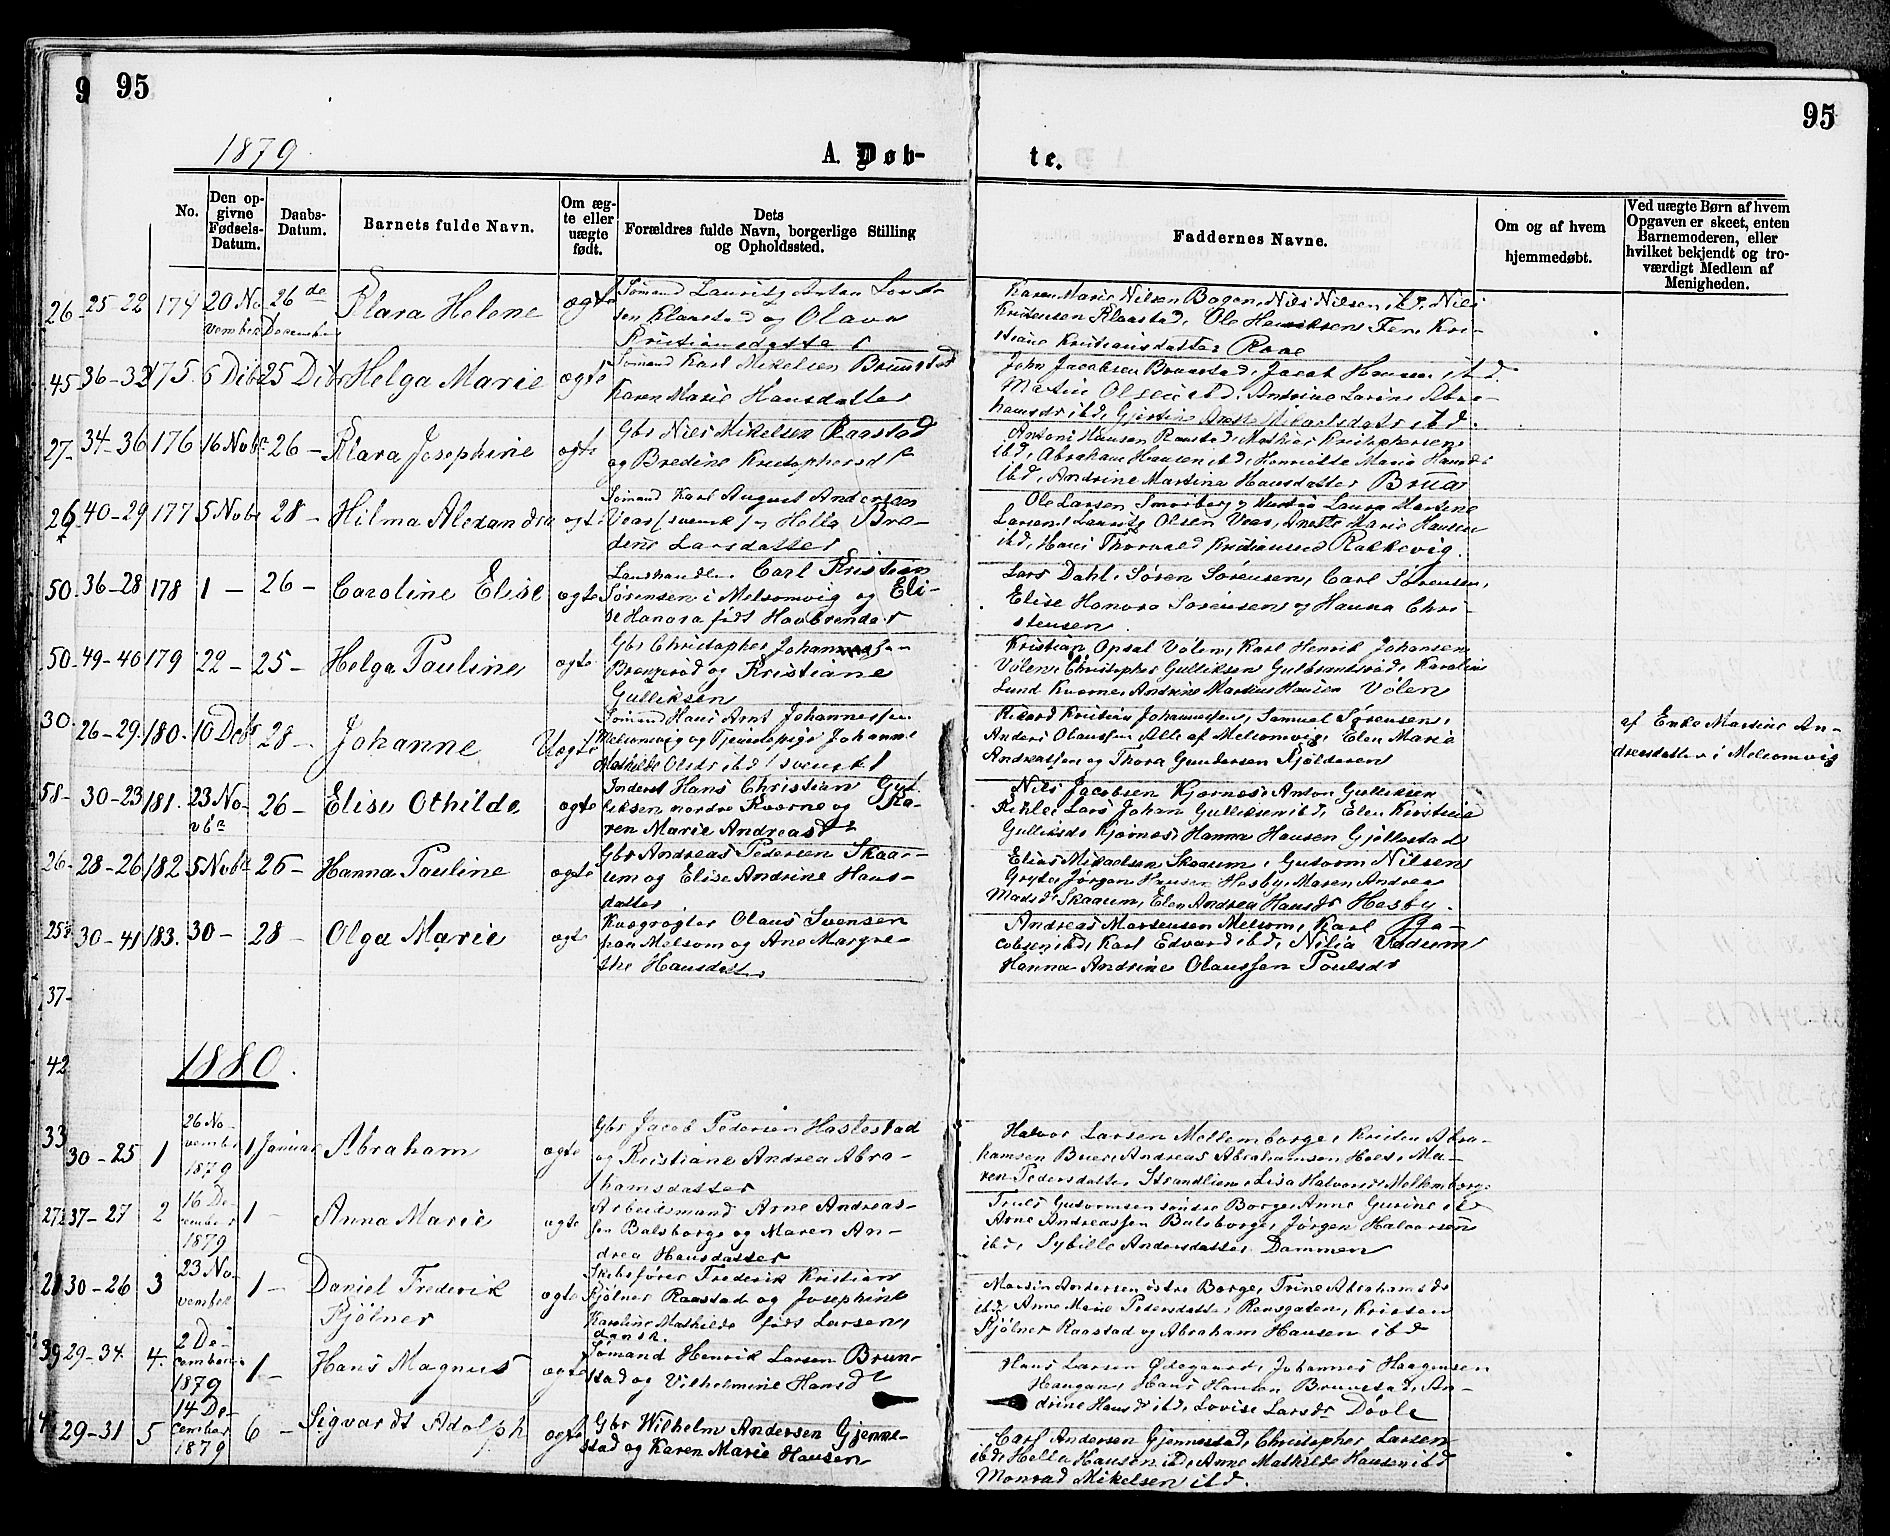 95
95
1879
A. Døb-
te.
No.
Den op-
givne
Fødsels-
Datum.
Daabs-
Datum.
Barnets fulde Navn.
Om æg-
te eller
uægte
født.
Dets
Forældres fulde Navn, borgerlige Stilling
og Opholdssted.
Faddernes Navne.
Om og af hvem
hjemmedøbt.
Ved uægte Børn af hvem
Opgaven er skeet, enten
Barnemoderen, eller
hvilket bekjendt og tro-
værdigt Medlem af
Menigheden.
25-22 174 20 No-
vember 26de
December Klara Helene ægte
Sømand Lauritz Anton
Klaastad og Olava
Kristiansdatter
Karen Marie Nilsen Bogen, Nils Nilsen ibd, Nils
Kristensen Klaastad, Ole Henriksen Fen, Kri-
stiane Kristiansdatter Raae
175 6 Dcbr 25 Dcbr Helga Marie ægte
Sømand Karl Mikelsen Brunstad
Karen Marie Hansdatter
John Jacobsen Brunstad, Jacob Hansen ibd.
Martin Olsen ibd, Andrine Larine Abra-
hamsdr ibd, Gjertine ibd.
34-36 176 16 Nobr 26 - Klara Josephine ægte
Gbr Nils Mikelsen Raastad
og Bredine Kristophersd
Anton Hansen Raastad, Mathias Kristophersen
ibd, Abraham Hansen ibd, Henriette Maria Hansdr
ibd, Andrine Martina Hansdatter Brua
40-29 177 5 Nobr 28 - Hilma Alexandra ægte
Sømand Karl August Andersen
Veas (svensk) og Hella Bre-
dine Larsdatter
Ole Larsen Smørberg og Laura Martine
Larsen, Lauritz Olsen Veas, Anette Marie Hansen
ibd, Hans Thorvald Kristiansen Rakkevig.
36-28 178 1 - 26 - Caroline Elise ægte
Landhandler Carl Kristian
Sørensen i Melsomvig og Eli-
se Hanora født Havbrender
Lars Dahl, Søren Sørensen, Carl Sørensen,
Elise Honora Sørensen og Hanna Chri-
stensen.
49-40 179 22 - 25 - Helga Pauline ægte
Gbr Christopher Johannessen
og Kristiane
Gulliksen
Kristian Opsal Volen, Karl Henrik Johansen
Volen, Christopher Gulliksen Gulbrandsrød, Karoline
Lund Kværne, Andrine Martine Hansen Volen
26-29 180. 10 Dcbr 28 - Johanne Uægte
Sømand Hans Arnt Johannessen
Melsomvig og Tjenestepige Johanne
Mathilde Olsdr ibd (svensk)
Rikard Kristian Johannessen, Samuel Sørensen,
Anders Olaussen Alle af Melsomvig, Elen Marie
Andreassen og Thora Gundersen Kjølderen
af Enke Martine An-
dreasdatter i Melsomvig
30-23 181. 23 No-
vbr 26 - Elise Othilde ægte
Inderst Hans Christian Gul-
liksen nordre Kværne og Ka-
ren Marie Andreasd
Nils Jacobsen Kjærnes, Anton Gulliksen
Lars Johan Gulliksen ibd, Elen Kristina
Gulliksdr Kjærnes, Hanna Hansen Gjøllestad
28-26 182 5 Nobr 25 - Hanna Pauline ægte
Gbr Andreas Pedersen Skaa-
um og Elise Andrine Hans-
datter
Elias Mikaelsen Skaaum, Guttorm Nilsen
Gryte, Jørgen Hansen Hesby, Maren Andrea
Madsdr Skaaum, Elen Andrea Hansdr Hesby.
30-41 183. 30 - 28 - Olga Marie ægte
Kvægrøgter Olaus Svensen
paa Melsom og Ane Margre-
the Hansdatter
Andreas Martensen Melsom, Karl Ja-
cobsen ibd, Karl Edvard ibd, Nilia Vadum
Hanna Andrine Olaussen Poulsdr
1880.
30-25 1 26 No-
vember
1879 1 Januar Abraham ægte
Gbr Jacob Pedersen Haslestad
og Kristiane Andrea Abra-
hamsdatter
Halvor Larsen Mellemborge, Kristen Abra-
hamsen Buer, Andreas Abrahamsen Holt, Ma-
ren Pedersdatter Strandlien, Lisa Halvorsd Mellemborge
37-27 2 16 De-
cember
1879 1 - Anna Marie ægte
Arbeidsmand Arne Andreas-
sen Bulsborge og Maren An-
drea Hansdatter
Truls Guttormsen søndre Borge, Anne Gurine ibd
Arne Andreassen Bulsborge, Jørgen Halvorsen
ibd, Sybille Andersdatter Dammen
30-26 3 23 No-
vember 1 - Daniel Frederik
Kjølner ægte
Skibsfører Frederik Kristian
Kjølner Raastad og Josephine
Karoline Mathilde født Larsen,
dansk.
Martin Andersen østre Borge, Trine Abrahamsdr
ibd, Anne Marie Pedersdatter Ramsgaten, Kristen
Kjølner Raastad og Abraham Hansen ibd
29-34. 4. 2 De-
cember
1879 1 - Hans Magnus ægte
Sømand Henrik Larsen Brun-
stad og Vilhelmine Hansd
Hans Larsen Ødegaard, Johannes Haagensen
Haugan, Hans Hansen Brunstad, An-
drine Hansdr ibd, Lovise Larsdr Døvle
29-31 5 14 De-
cember
1879 6 - Sigvardt Adolph ægte
Gbr Wilhelm Andersen Gjenne-
stad og Karen Marie Hansen
Carl Andersen Gjennestad, Christopher Larsen
ibd, Helle Hansen ibd, Anne Mathilde Hansen ibd
Monrad Mikelsen ibd.